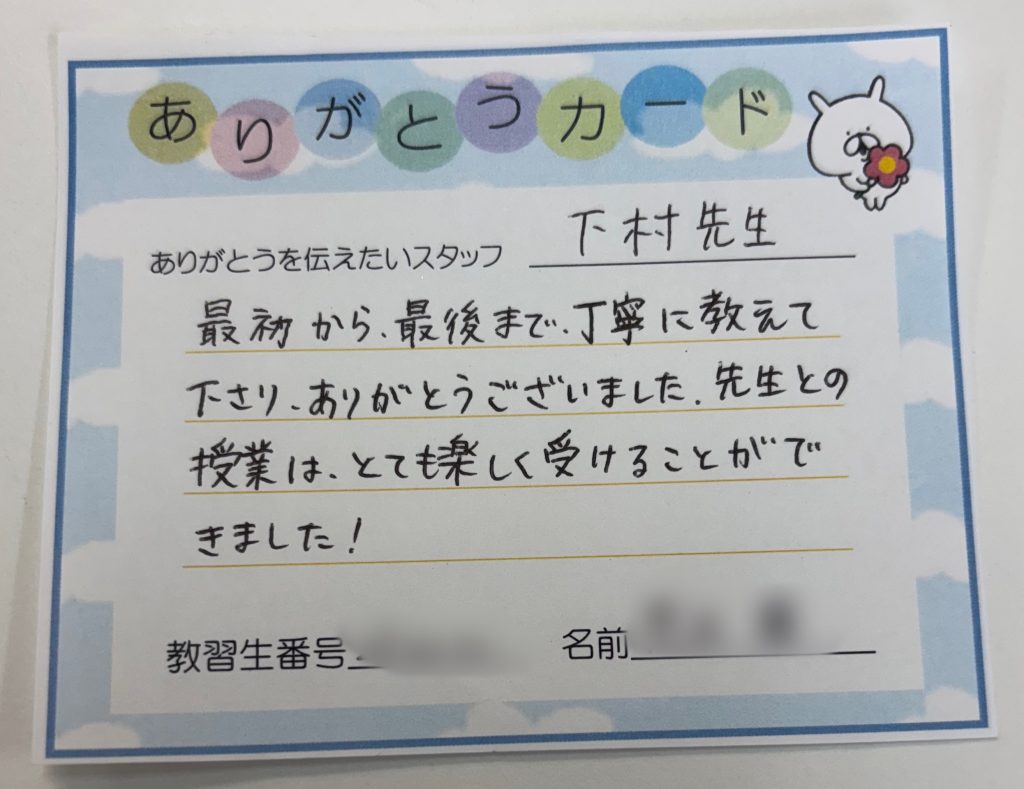 ありがとうカード
ありがとうを伝えたいスタッフ 下村先生
最初から、最後まで、丁寧に教えて
下さり、ありがとうございました。先生との
授業は、とても楽しく受けることがで
きました!
教習生番号 名前